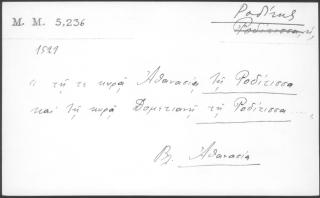 Ροδίτης
M. M. 5,236 Ροδίτισσα
1521
τῇ τε κυρᾷ Ἀθανασίᾳ τῇ Ροδίτισσα
καὶ τῇ κυρᾷ Δομιτιανῇ τῇ Ροδίτισσα ...
Βλ. Ἀθανασία